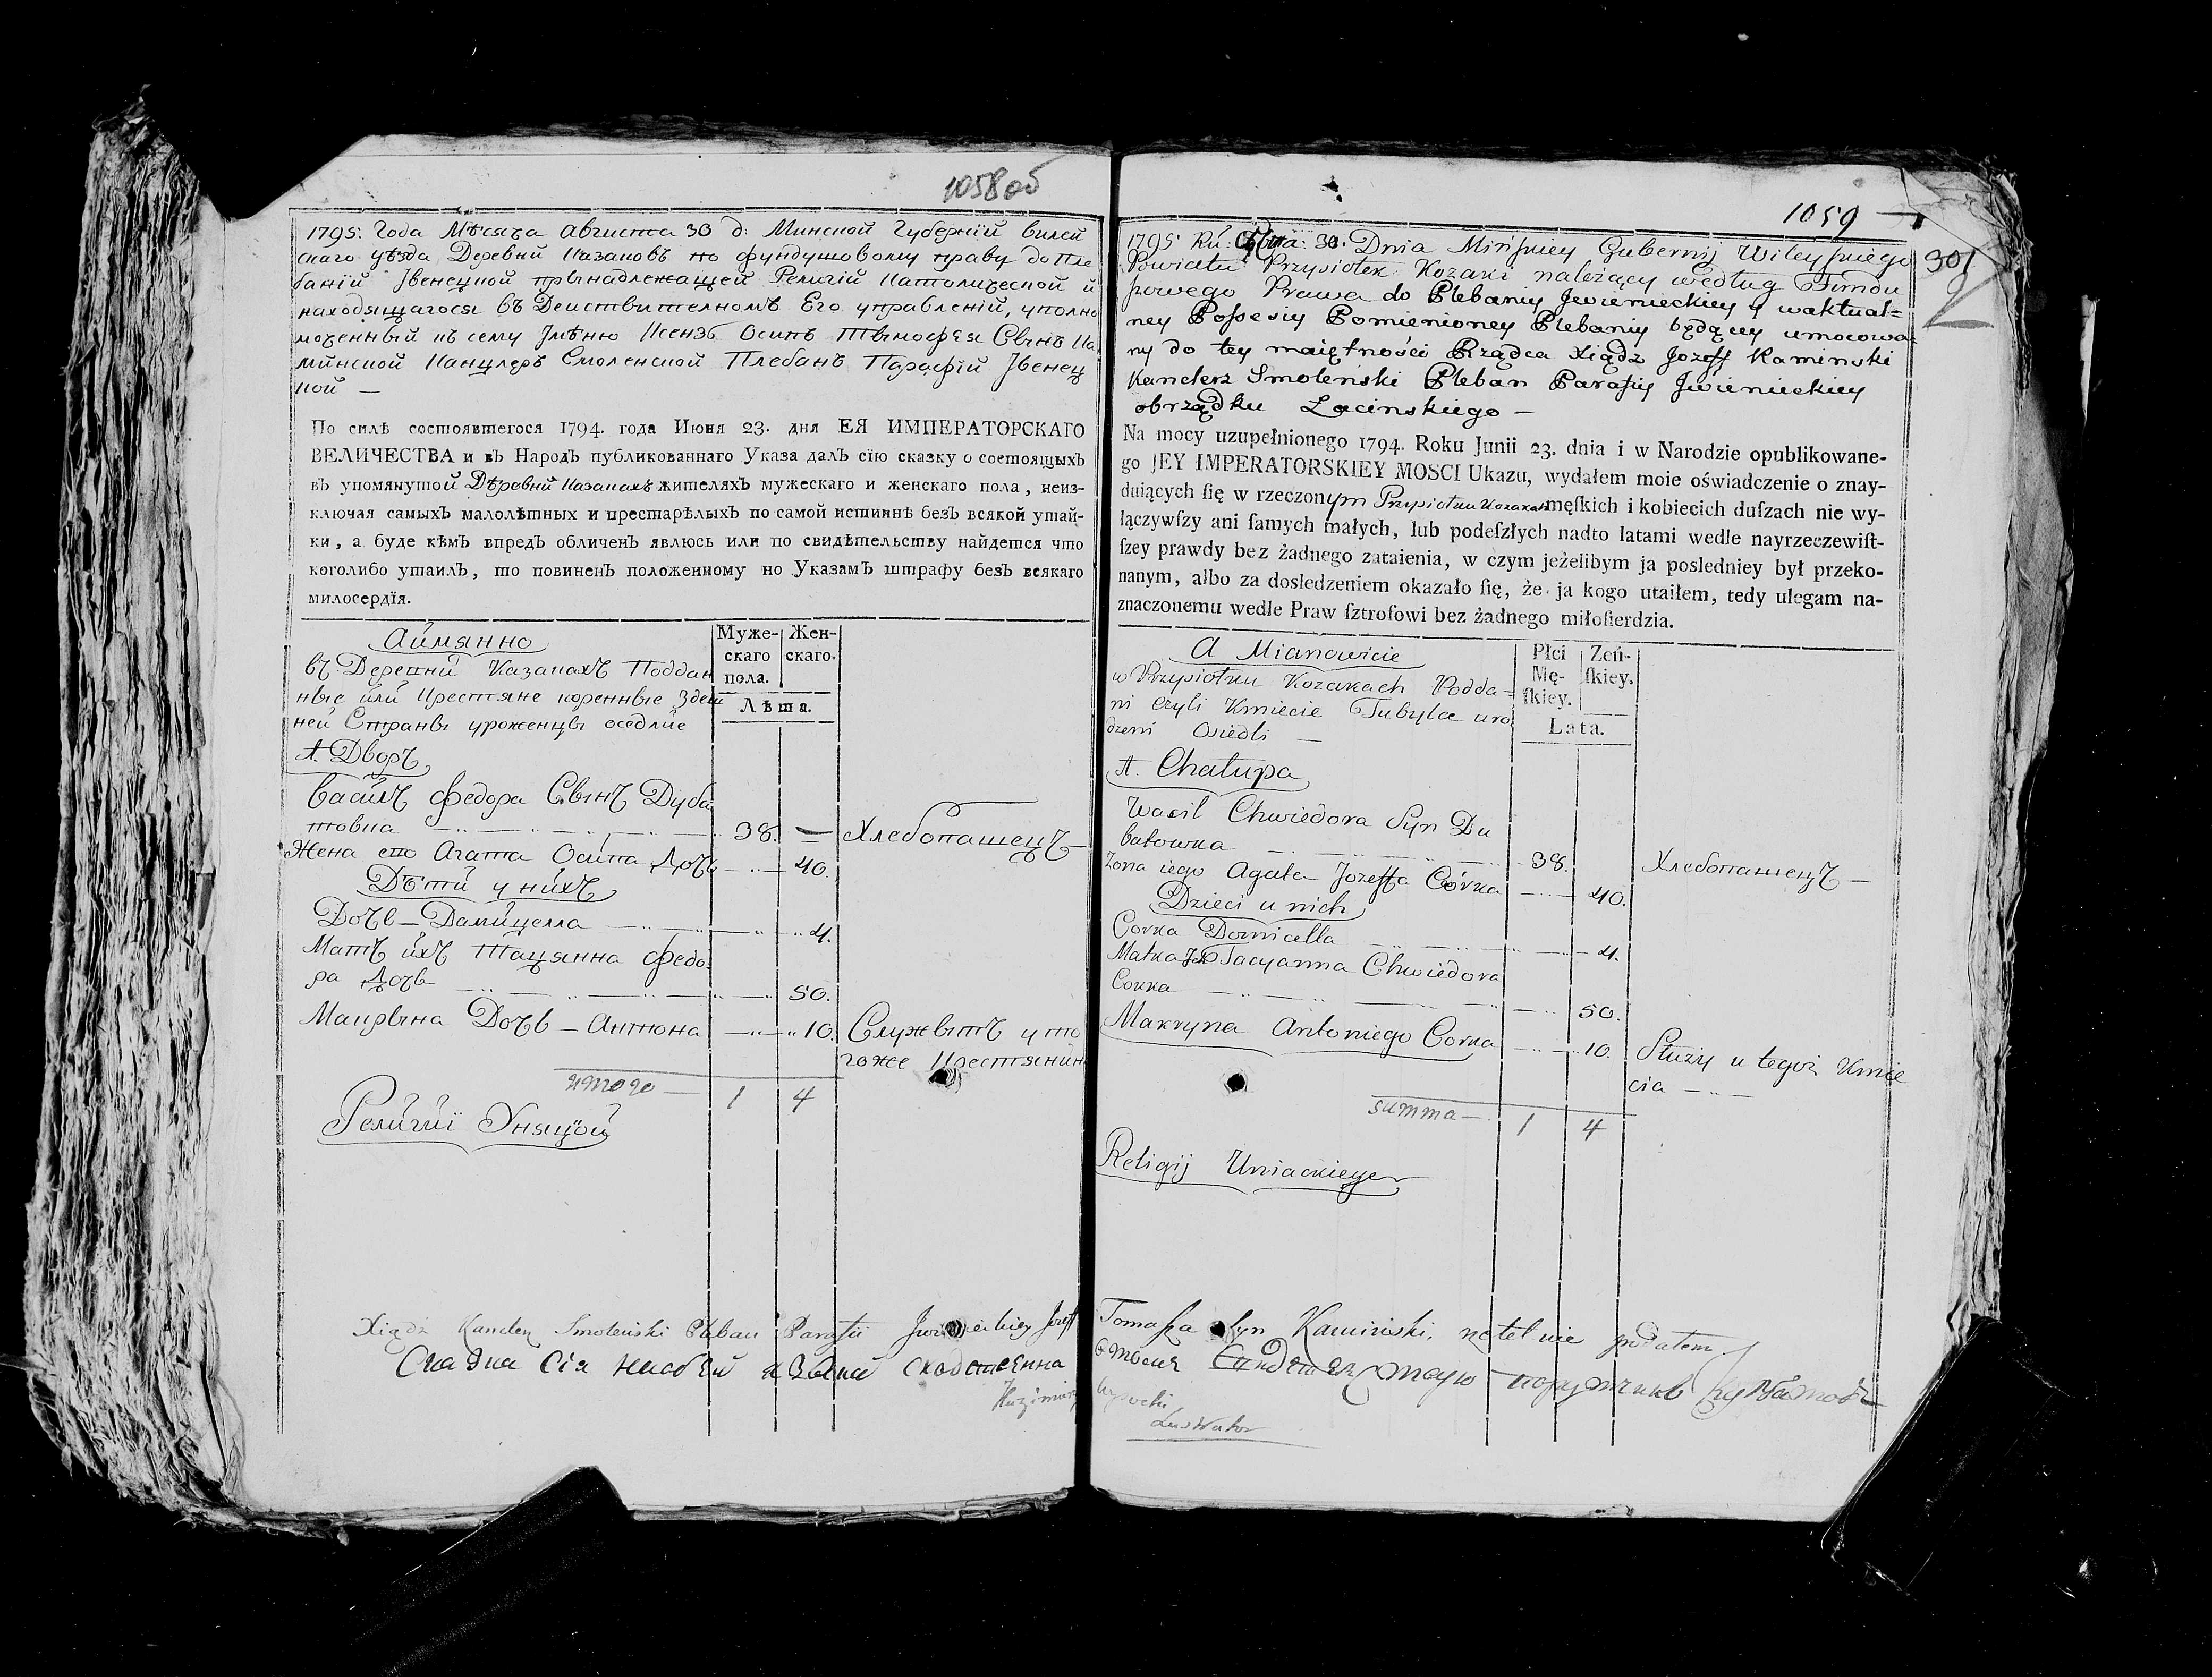 1058 об
1795. Года Мѣсяца Августа 30 д: Минской Губерніи вилей
скаго уѣзда Деревни Казаковъ по фундушовому праву до Пле
баніи Ивенецкой прынадлежащей Религіи Католической и
находящагося въ Деиствителномъ Его управленіи, уполно
моченный къ сему Имѣню Ксензъ Осипъ Тымофея Сынъ Ка
минской Канцлеръ Смоленской Плебанъ Парафіи Ивенец
кой —
По силѣ состоявшегося 1794. года Июня 23. дня ЕЯ ИМПЕРАТОРСКАГО
ВЕЛИЧЕСТВА и въ Народъ публикованнаго Указа далъ сїю сказку о состоящыхъ
въ упомянутой Деревни Казакахъ жителяхъ мужескаго и женскаго пола, неиз-
ключая самыхъ малолѣтных и престарѣлыхъ по самой истиннѣ безъ всякой утай-
ки, а буде кѣмъ впредъ обличенъ явлюсь или по свидѣтельству найдется что
коголибо утаилъ, то повиненъ положенному по Указамъ штрафу безъ всякаго
милосердїя.
Аймянно
Муже-
скаго
пола.
Жен-
скаго.
Лѣта.
въ Деревни Казакахъ Поддан
ные или Крестяне коренные Здеш
ней Страны уроженцы оседлые
1. Дворъ
Василь Федора Сынъ Дуба
товка 38. — Хлебопашецъ —
Жена его Агата Осипа Дочь 40.
Дѣти у нихъ
Дочь — Дамицелла 4.
Матъ ихъ Тацянна Федо
ра Дочь 50.
Макрына Дочь — Антона 10. Служытъ у то
гоже Крестянин
итого — 1 4
Религіи Уняцкой
1059
301
1795 Ru: 30. Dnia Mińskiey Gubernij Wileyskiego
Powiatu Przysiołek Kozaki należący według Fundu
szowego Prawa do Plebaniy Jwienieckiey y waktual=
ney Possesiy Pomienioney Plebaniy będący umocowa
ny do tey maiętności Rządca Xiądz Jozeff Kaminski
Kanclerz Smolenski Pleban Parafiy Jwienieckiey
obrządku Łacinskiego —
Na mocy uzupełnionego 1794. Roku Junii 23. dnia i w Narodzie opublikowane-
go JEY IMPERATORSKIEY MOSCI Ukazu, wydałem moie oświadczenie o znay-
duiących ſię w rzeczonym Przysiołku Kozakach męſkich i kobiecich duſzach nie wy-
łączywſzy ani ſamych małych, lub podeſzłych nadto latami wedle nayrzeczewiſt-
ſzey prawdy bez żadnego zataienia, w czym jeżelibym ja posledniey był przeko-
nanym, albo za dosledzeniem okazało ſię, że ja kogo utaiłem, tedy ulegam na-
znaczonemu wedle Praw ſztrofowi bez żadnego miłoſierdzia.
A Mianowicie
Płci
Mę-
ſkiey.
Zeń-
ſkiey.
Lata.
w Przysiołku Kozakach Podda=
ni czyli Kmiecie Tubylce uro
dzeni Osiedli —
1. Chałupa
Wasil Chwiedora Syn Du
batowka 38. Хлебопашецъ —
Zona iego Agata Jozeffa Córka 40.
Dzieci u nich
Corka Domicella 4.
Matka Jch Tacyanna Chwiedora
Corka 50.
Makryna Antoniego Corka 10. Służy u tegoż Kmie
cia —
summa — 1 4
Religij Uniackiey
Xiądz Kanclerz Smoleński Pleban Parafii Jwienieckiey Jozeff Tomasza Syn Kamiński, podałem.
Скаска сія
Kazimierz Wysocki
Lustrator